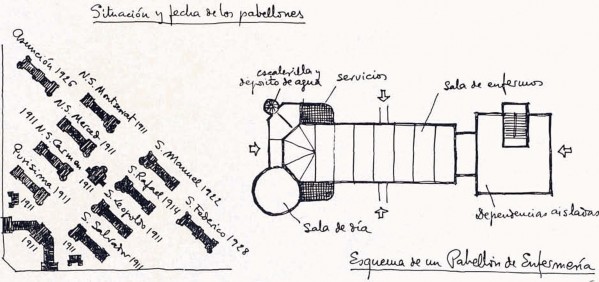 Situación y fecha de los pabellones
Asunción 1926
N.S. Montserrat 1911
N.S. Merced 1911
1911 N.S. Carmen
Purísima 1911
1911
S. Manuel 1922
S. Rafael 1914
S. Leopoldo 1911
S. Federico 1928
S. Salvador 1911
1911
1911
1911
escalerilla y
depósito de agua
servicios
sala de enfermos
Sala de día
Dependencias aisladas
Esquema de un Pabellón de Enfermería